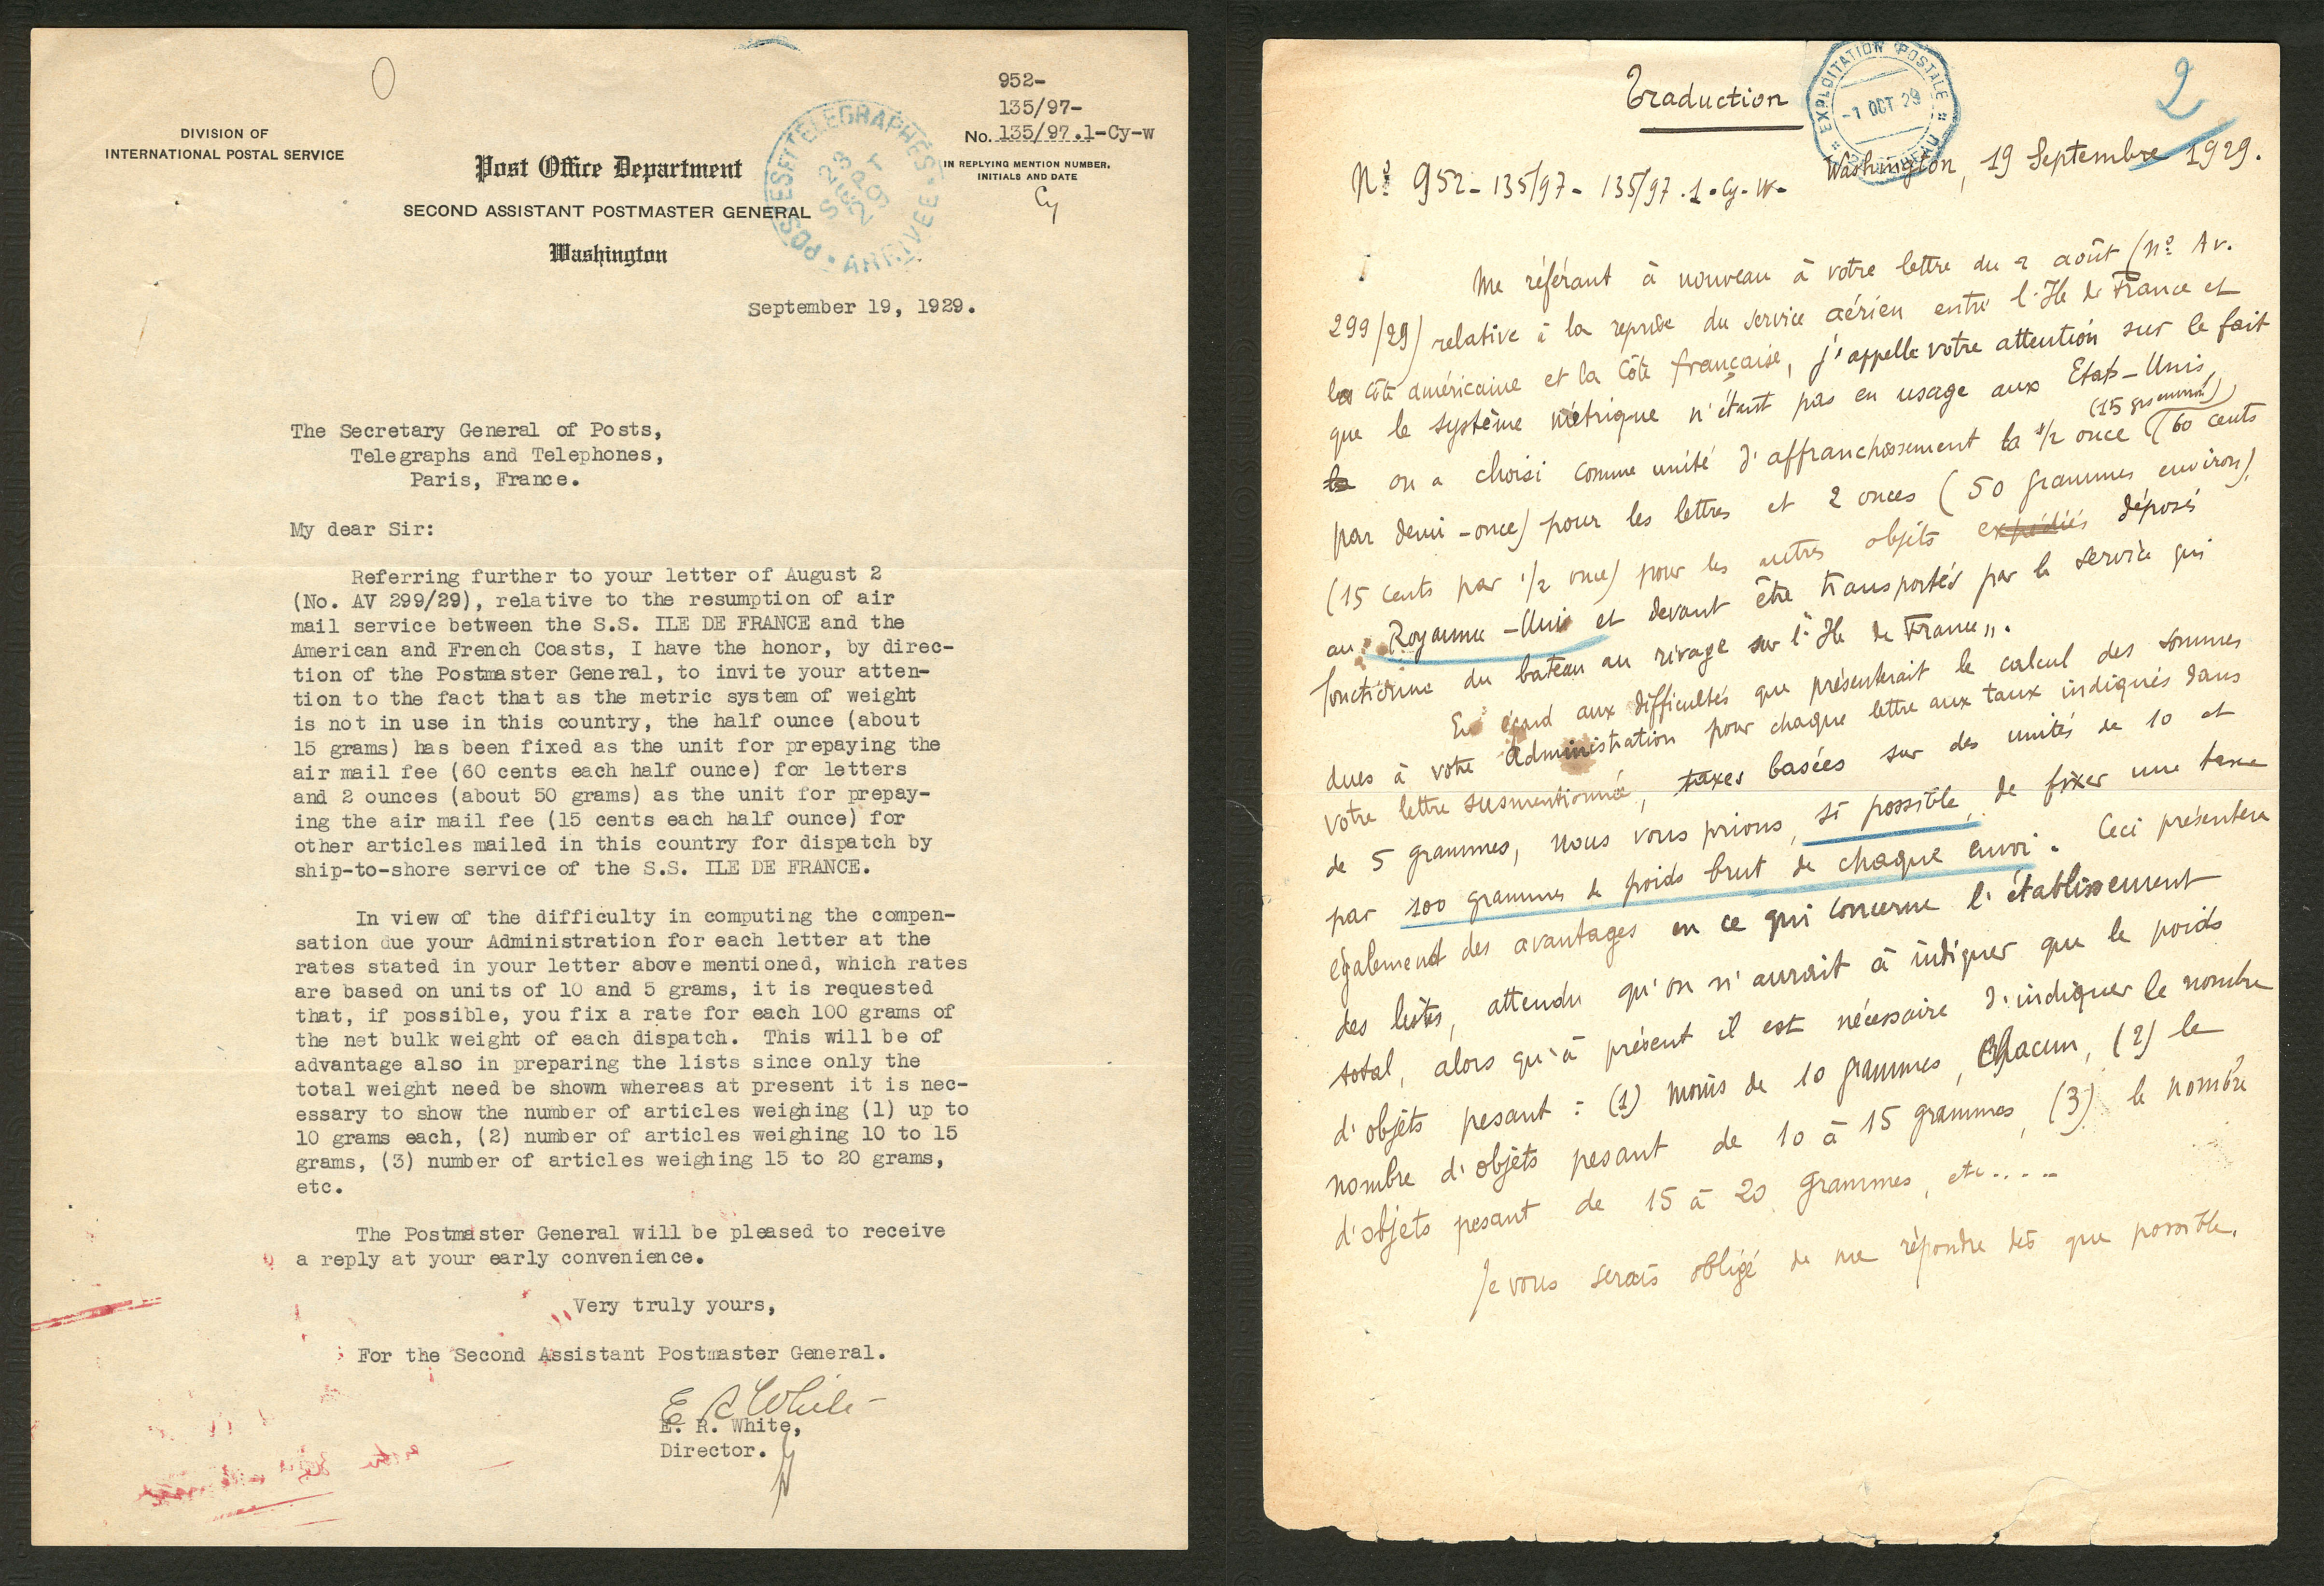 952-
135/97-
No. 135/97.1-Cy-w
IN REPLYING MENTION NUMBER,
INITIALS AND DATE
Cy
DIVISION OF
INTERNATIONAL POSTAL SERVICE
Post Office Department
SECOND ASSISTANT POSTMASTER GENERAL
Washington
POSTES ET TELEGRAPHES
23
SEPT
29
ARRIVEE
September 19, 1929.
The Secretary General of Posts,
Telegraphs and Telephones,
Paris, France.
My dear Sir:
Referring further to your letter of August 2
(No. AV 299/29), relative to the resumption of air
mail service between the S.S. ILE DE FRANCE and the
American and French Coasts, I have the honor, by direc-
tion of the Postmaster General, to invite your atten-
tion to the fact that as the metric system of weight
is not in use in this country, the half ounce (about
15 grams) has been fixed as the unit for prepaying the
air mail fee (60 cents each half ounce) for letters
and 2 ounces (about 50 grams) as the unit for prepay-
ing the air mail fee (15 cents each half ounce) for
other articles mailed in this country for dispatch by
ship-to-shore service of the S.S. ILE DE FRANCE.
In view of the difficulty in computing the compen-
sation due your Administration for each letter at the
rates stated in your letter above mentioned, which rates
are based on units of 10 and 5 grams, it is requested
that, if possible, you fix a rate for each 100 grams of
the net bulk weight of each dispatch. This will be of
advantage also in preparing the lists since only the
total weight need be shown whereas at present it is nec-
essary to show the number of articles weighing (1) up to
10 grams each, (2) number of articles weighing 10 to 15
grams, (3) number of articles weighing 15 to 20 grams,
etc.
The Postmaster General will be pleased to receive
a reply at your early convenience.
Very truly yours,
For the Second Assistant Postmaster General.
E R White
E. R. White,
Director.
Traduction
EXPLOITATION POSTALE
-1 OCT 29
BUREAU
2
Washington, 19 Septembre 1929.
N° 952-135/97-135/97.1.Cy-W-
Me référant à nouveau à votre lettre du 2 août (N° Av.
299/29) relative à la reprise du service aérien entre l'Ile de France et
la côte américaine et la côte française, j'appelle votre attention sur le fait
que le système métrique n'étant pas en usage aux Etats-Unis,
(15 grs environ)
on a choisi comme unité d'affranchissement la 1/2 once (60 cents
par demi-once) pour les lettres et 2 onces (50 grammes environ)
(15 cents par 1/2 once) pour les autres objets expédiés déposés
au Royaume-Uni et devant être transportés par le service qui
fonctionne du bateau au rivage sur l'"Ile de France".
Eu égard aux difficultés que présenterait le calcul des sommes
dues à votre Administration pour chaque lettre aux taux indiqués dans
votre lettre susmentionnée, taxes basées sur des unités de 10 et
de 5 grammes, nous vous prions, si possible, de fixer une taxe
par 100 grammes de poids brut de chaque envoi. Ceci présentera
également des avantages en ce qui concerne l'établissement
des listes, attendu qu'on n'aurait à indiquer que le poids
total, alors qu'à présent il est nécessaire d'indiquer le nombre
d'objets pesant : (1) moins de 10 grammes, chacun, (2) le
nombre d'objets pesant de 10 à 15 grammes, (3) le nombre
d'objets pesant de 15 à 20 grammes, etc.....
Je vous serais obligé de me répondre dès que possible.